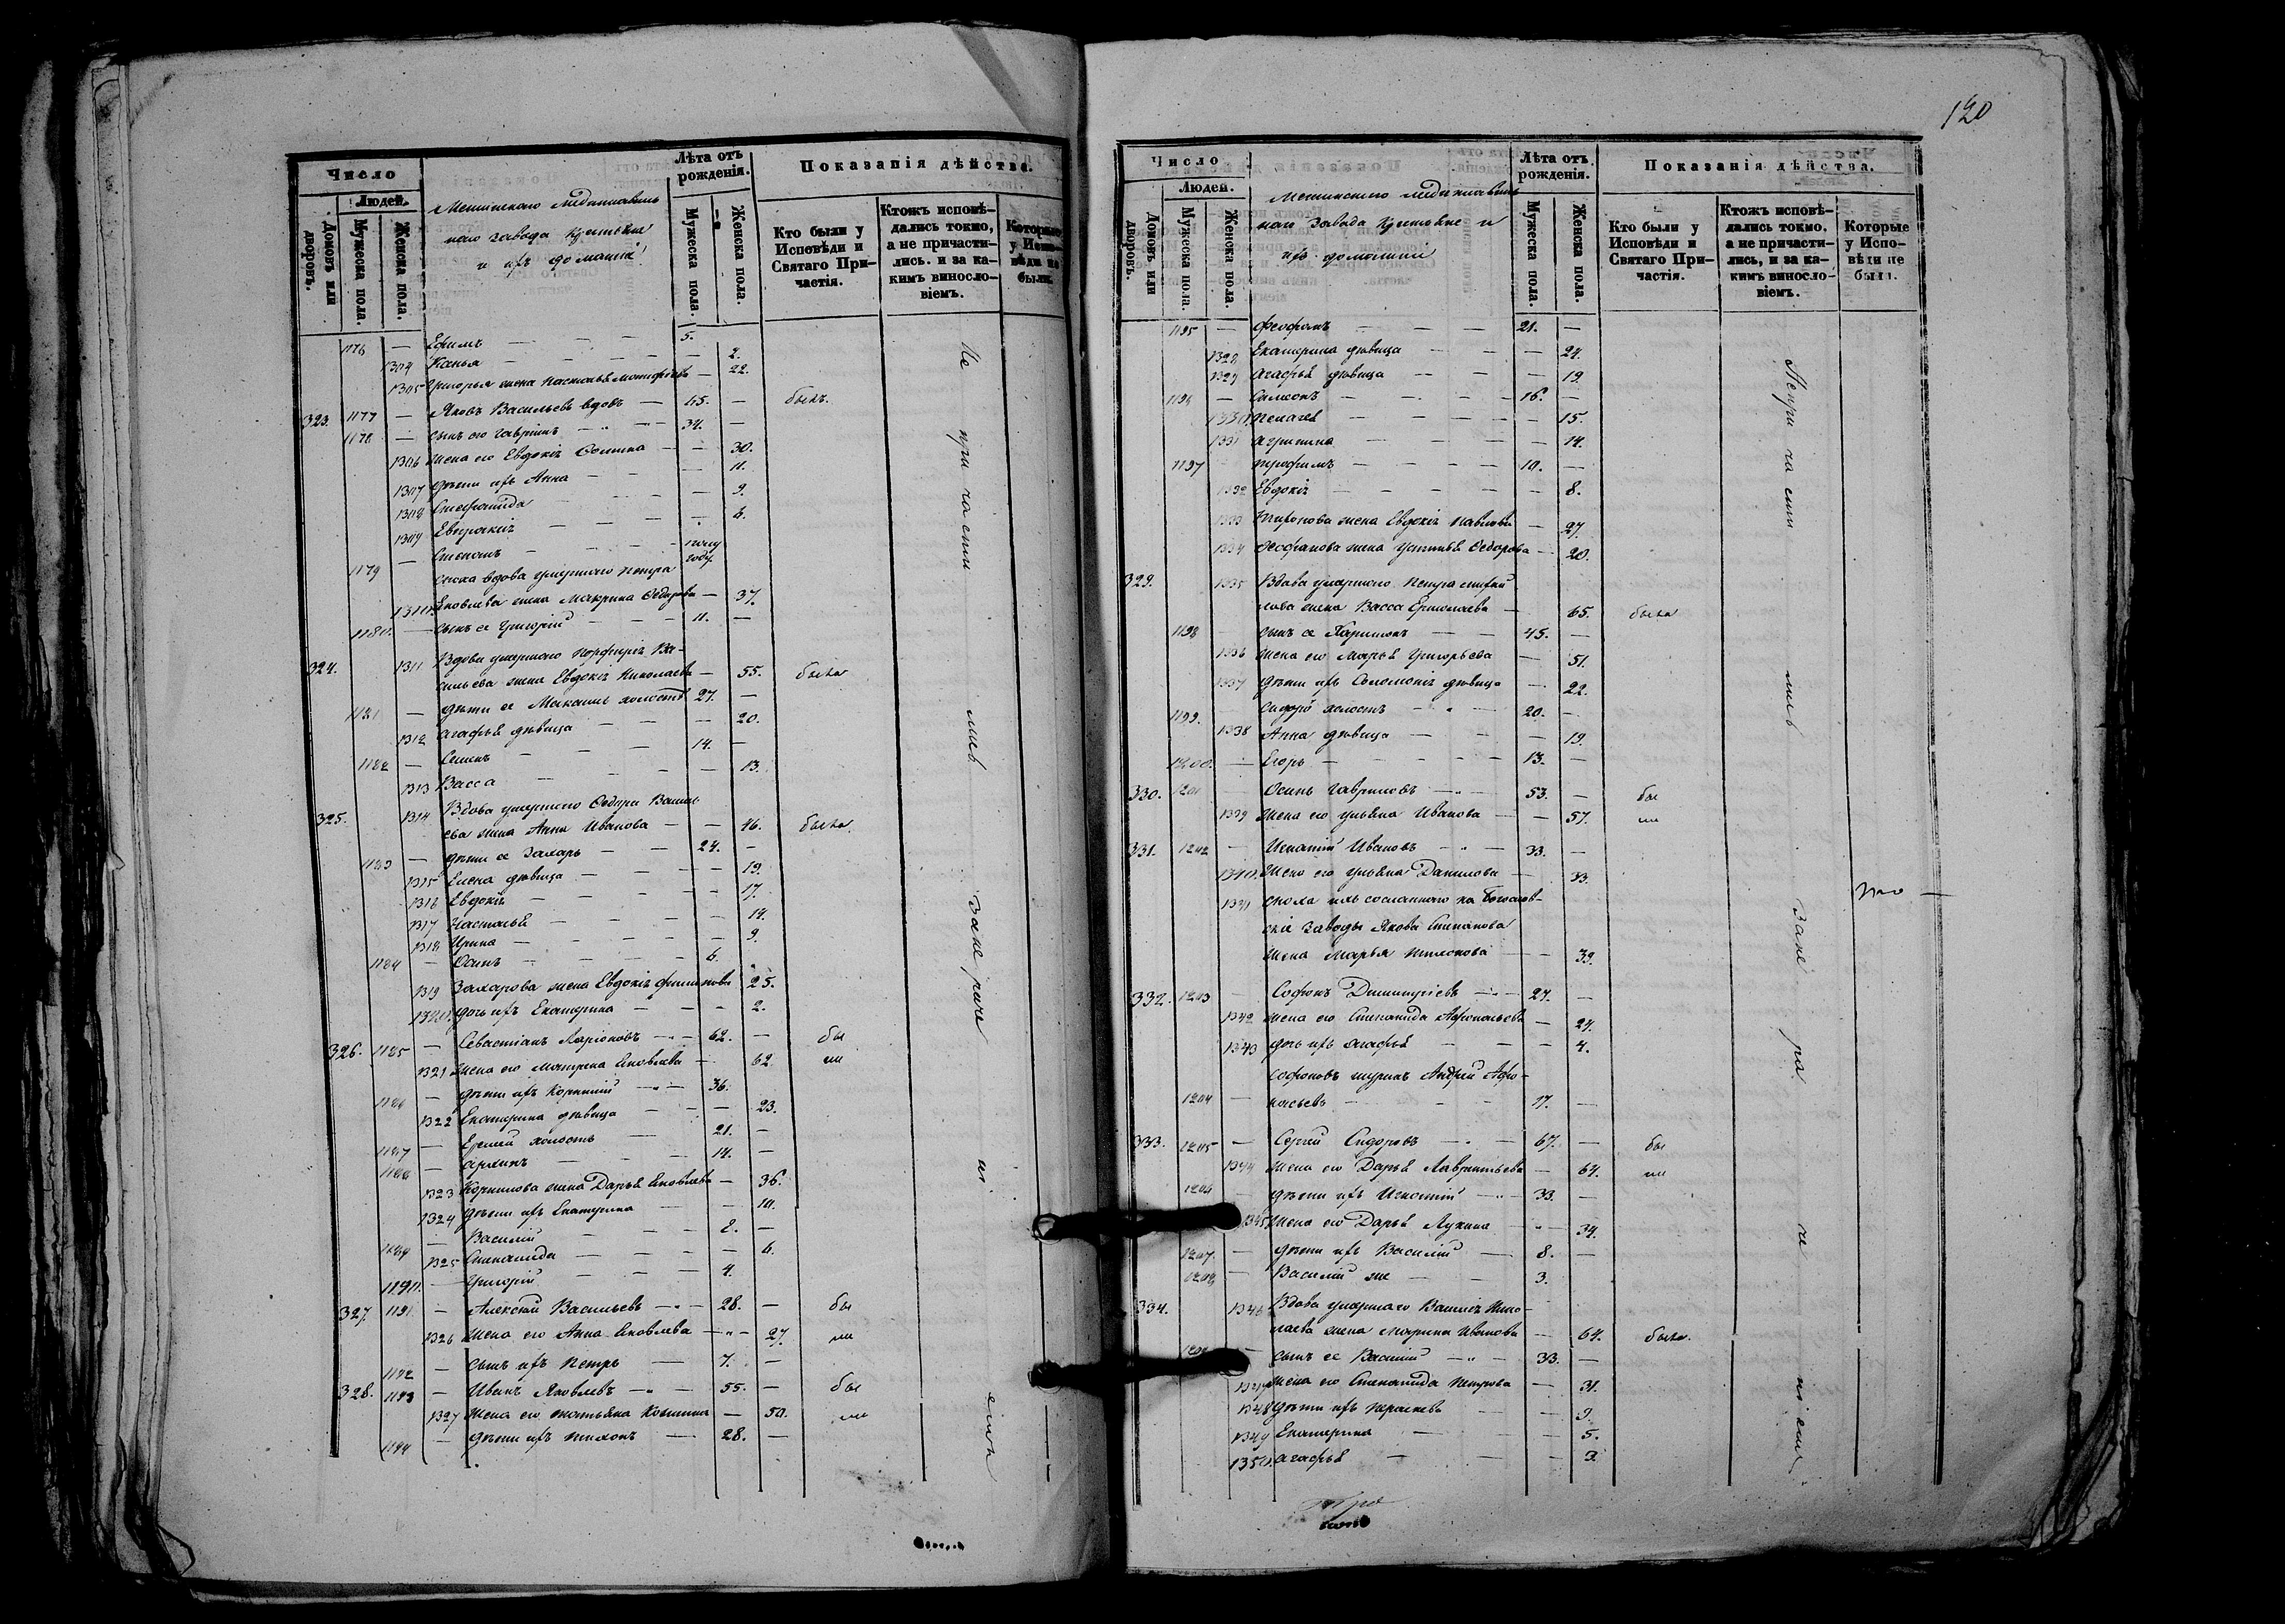 Число
Людей.
Домовъ или дворовъ.
Мужеска пола.
Женска пола.
завода
и ихъ домашніе
Лѣта отъ рожденія.
Мужеска пола.
Женска пола.
Показанія дѣйства.
Кто были у Исповѣди и Святаго Причастія.
Ктожъ исповѣдались токмо, а не причастились. и за какимъ винословіемъ.
Которые у Исповѣди не были.
1176 — Ефимъ — 5.
1304 — 2.
1305 жена — 22.
323. 1177 — Яковъ Васильевъ вдовъ — 65. — былъ.
1178 — сынъ его Гавріилъ — 34. —
1306 жена его Евдокія — 30.
1307 дѣти ихъ Анна — 11.
1308 Степанида — 9.
1309 Евпраксія — 6.
1179 — Степанъ — полу году.
снока вдова умершаго Петра
1310 Яковлева жена Макрина Ѳедорова — 37.
1180 — сынъ ее Григорій — 11. —
324. 1311 Вдова умершаго Порфирія Ва-
сильева жена Евдокія Николаева — 55. была
1181 — дѣти ее Максимъ холостъ 27. —
1312 Агафья дѣвица — 20.
1182 — Семенъ — 14. —
1313 Васса — 13.
325. 1314 Вдова умершаго Ѳедора Василь
ева жена Анна Иванова — 46. была.
1183 — дѣти ее Захаръ — 24. —
1315 Елена дѣвица — 19.
1316 Евдокія — 17.
1317 Настасья — 14.
1318 Ирина — 9.
1184 — Осипъ — 6.
1319 Захарова жена Евдокія Филипова 25.
1320 дочь ихъ Екатерина — 2.
326. 1185 — Севастіанъ Ларіоновъ — 62. — бы
1321 жена его Матрена Яковлева — 62. ли
1186 — дѣти ихъ Корнилій — 36.
1322 Екатерина дѣвица — 23.
1187 — Ермей холостъ — 21. —
1188 — Архипъ — 14. —
1323 Корнилова жена Дарья Яковлева — 36.
1324 дѣти ихъ Екатерина — 10.
1189 — Василій — 8. —
1325 Степанида — 6.
1190 — Григорій — 4.
327. 1191 — Алексѣй Васильевъ — 28. — бы
1326 жена его Анна Яковлева — 27. ли
1192 — сынъ ихъ Петръ — 7. —
328. 1193 — Иванъ Яковлевъ — 55. — бы
1327 жена его Татьяна Козьмина — 50. ли
1194 — дѣти ихъ Тихонъ — 28. —
Не при ча сти лись За не раче ні емъ
120
Число
Людей.
Домовъ или дворовъ.
Мужеска пола.
Женска пола.
наго завода и
ихъ домашніе
Лѣта отъ рожденія.
Мужеска пола.
Женска пола.
Показанія дѣйства.
Кто были у Исповѣди и Святаго Причастія.
Ктожъ исповѣдались токмо. а не причастились, и за какимъ винословіемъ.
Которые у Исповѣди не были.
1195 — Феофанъ — 21. —
1328 Екатерина дѣвица — 24.
1329 Агафья дѣвица — 19.
1196 — Самсонъ — 16. —
1330 Пелагея — 15.
1331 Агрипина — 14.
1197 Трофимъ — 10. —
1332 Евдокія — 8.
1333 Тихонова жена Евдокія Павлова — 27.
1334 Ѳеофанова жена Устинья Ѳедорова — 20.
329. 1335 Вдова умершаго Петра
лова жена Васса Ермолаева — 65. была
1198 сынъ ее Харитонъ — 45. —
1336 жена его Марья Григорьева — 51.
1337 дѣти ихъ Соломонія дѣвица — 22.
1199. Сидоръ холостъ — 20. —
1338 Анна дѣвица — 19.
1200. — Егоръ — 13. —
330. 1201 Осипъ Гавриловъ — 53. — бы
1339 жена его Ульяна Иванова — 57. ли
331. 1202 — Игнатій Ивановъ — 33. —
1340. жена его Ульяна Данилова — 33.
1341 сноха ихъ сосланнаго на Богослов-
скіе заводы Якова Степанова
жена Марья Тихонова — 39.
332. 1203 Софонъ Димитріевъ — 27. —
1342 жена его Степанида Афонасьева — 24.
1343 дочь ихъ Агафья — 4.
Софоновъ шуринъ Андрей Афо-
1204 — насьевъ — 17. —
333. 1205 — Сергей Сидоровъ — 67. — бы
1344 жена его Дарья Лаврентьева — 64. ли
1206 — дѣти ихъ Игнатій — 33. —
1345 жена его Дарья Лукина — 34.
1207. — дѣти ихъ Василій — 8. —
1208 — Василій же — 3.
334. 1346 Вдова умершаго Василія Нико-
лаева жена Марина Иванова — 64. была.
сынъ ее Василій — 33. —
1347 жена его Степанида Петрова — 31.
1348 дѣти ихъ Парасковья — 9.
1349 Екатерина — 5.
1350. Агафья — 3.
Непри ча сти лись Зане ра че ні емъ